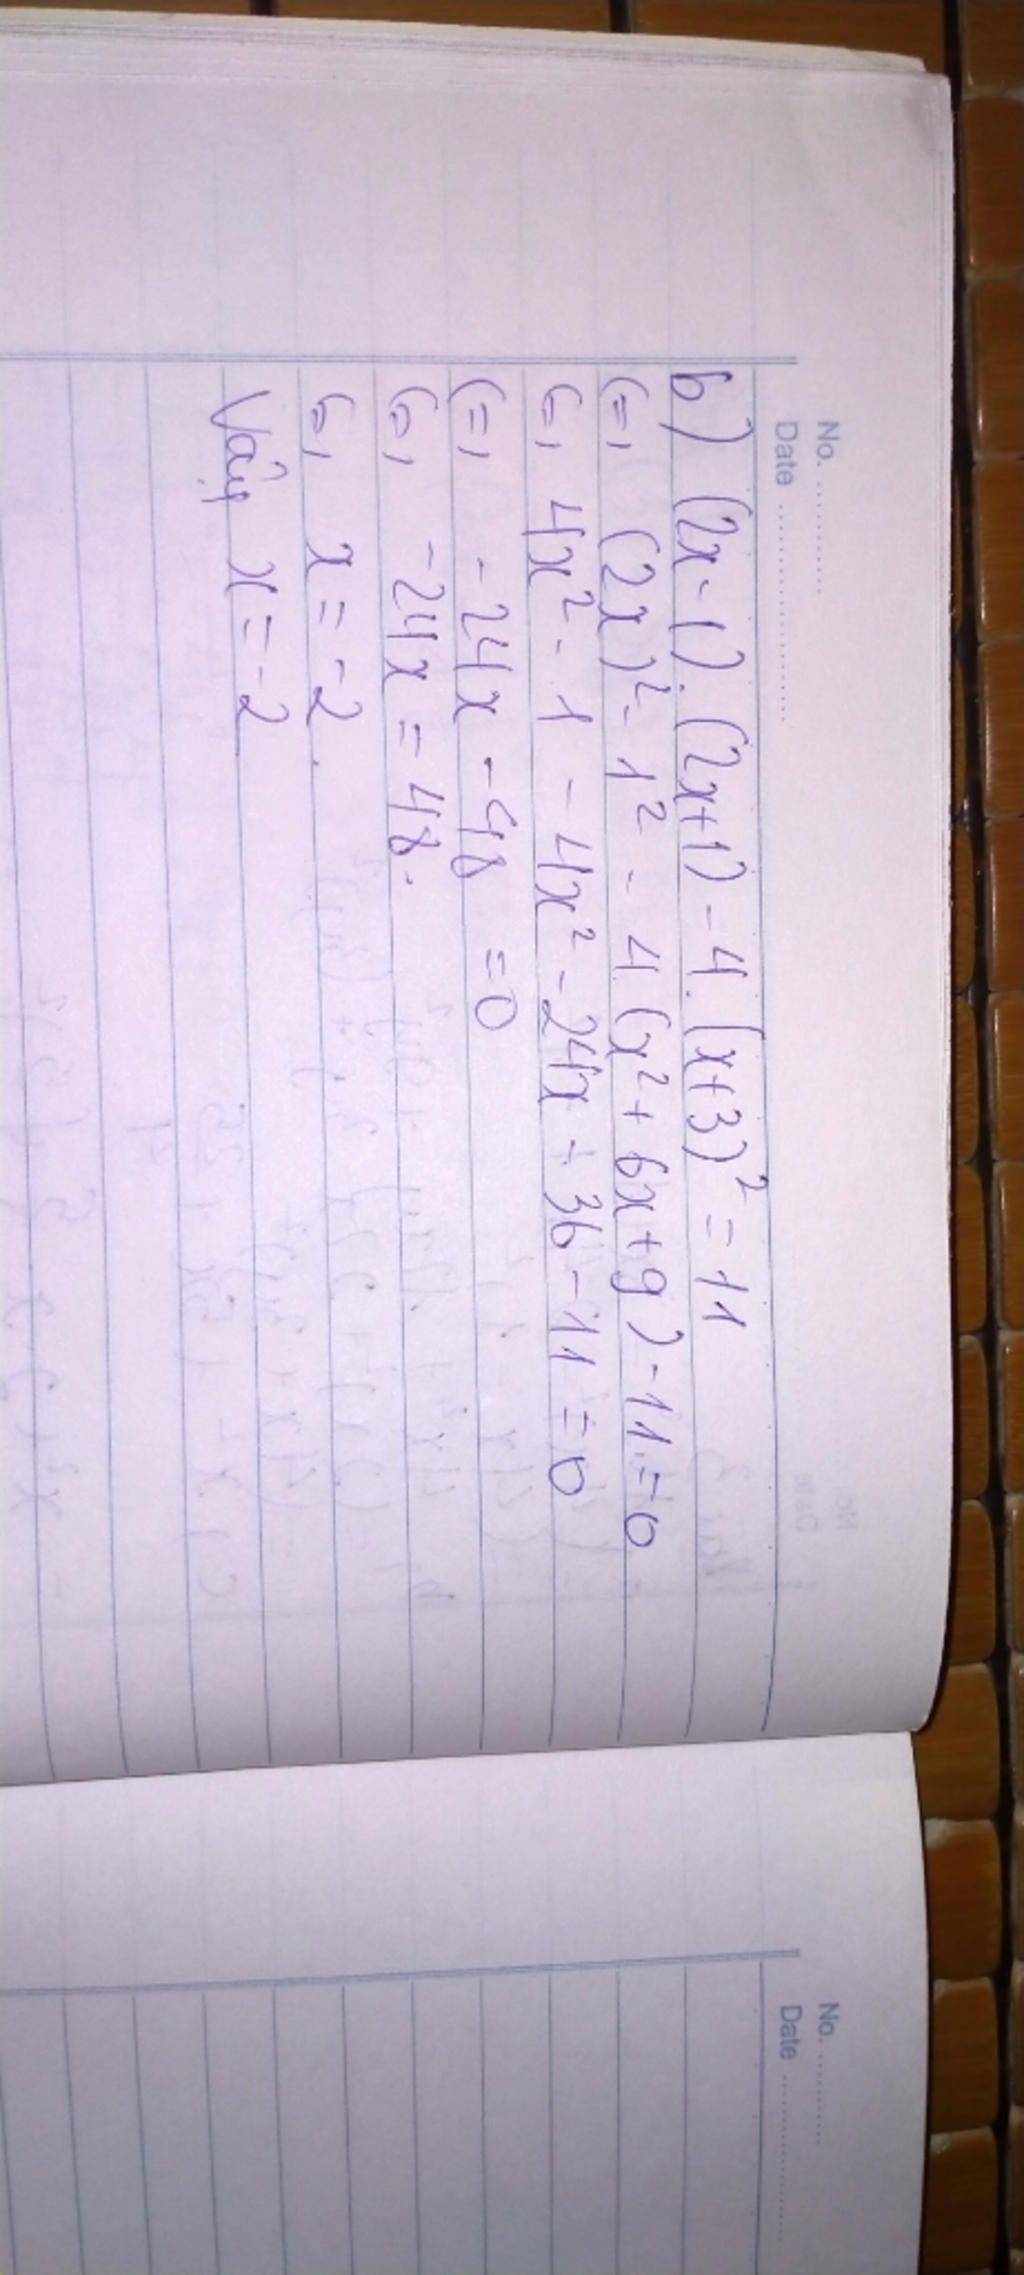 No. ............
Date ........................
b) (2x-1).(2x+1)-4.(x+3)² = 11
(=, (2x)² - 1² - 4.(x² + 6x + 9) - 11 = 0
(=, 4x² - 1 - 4x² - 24x - 36 - 11 = 0
(=, -24x - 48 = 0
(=, -24x = 48.
(=, x = -2.
Vậy x = -2
No. ............
Date ........................